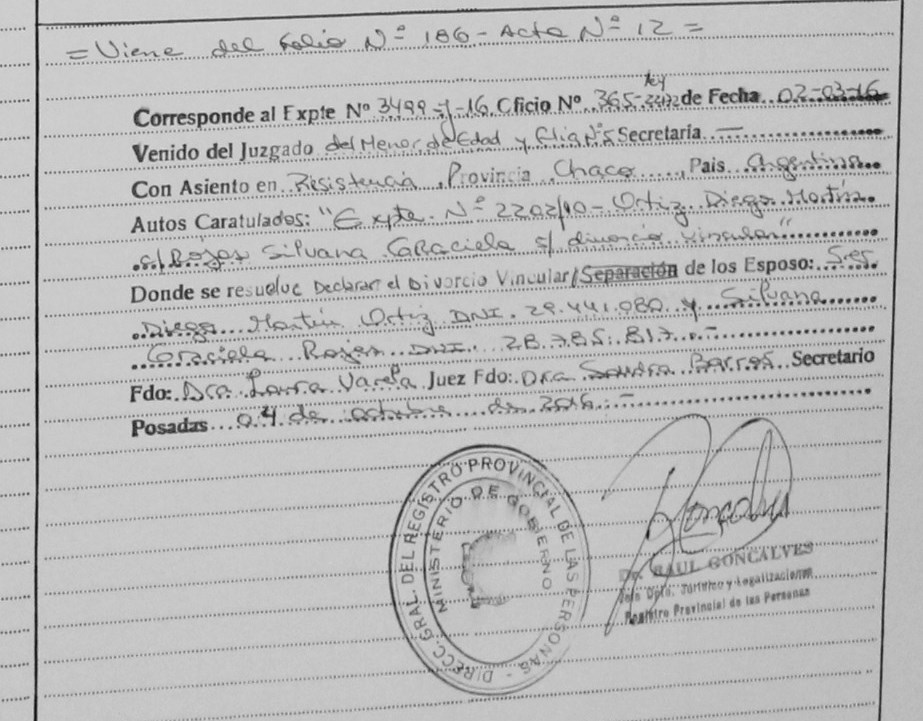 = Viene del Folio Nº 186 - Acta Nº 12 =
Corresponde al Expte Nº 3499-J-16 Oficio Nº 365- ley 22172 de Fecha 02-03-16
Venido del Juzgado del Menor de Edad y Flia Nº5 Secretaria —
Con Asiento en Resistencia, Provincia Chaco, Pais Argentina
Autos Caratulados: "Expte. Nº 2202/10 - Ortiz Diego Martín
c/ Rojas Silvana Graciela s/ divorcio vincular"
Donde se resuelve Declarar el Divorcio Vincular/Separación de los Esposo: Sres
Diego Martín Ortiz DNI. 29.441.080 y Silvana
Graciela Rojas DNI. 28.785.817.-
Fdo: Dra Laura Varela Juez Fdo: Dra Sandra Barros Secretario
Posadas 04 de octubre de 2016.-
DIRECC. GRAL. DEL REGISTRO PROVINCIAL DE LAS PERSONAS -
MINISTERIO DE GOBIERNO
Dr. RAUL GONCALVES
Jefe Dpto. Jurídico y Legalizaciones
Registro Provincial de las Personas